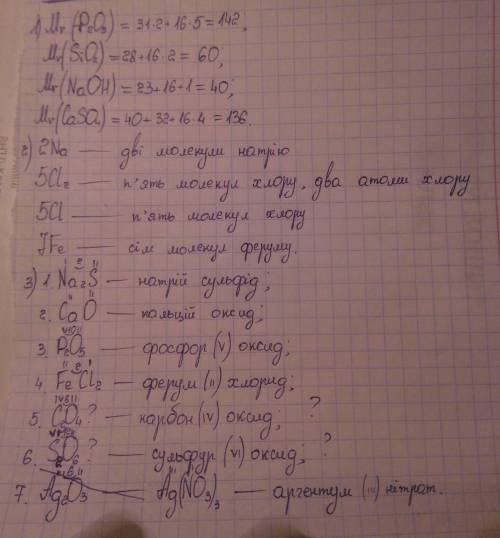 1) Mr(P₂O₅) = 31·2+16·5 = 142,
Mr(SiO₂)=28+16·2 = 60;
Mr(NaOH)=23+16+1=40;
Mr(CaSO₄)=40+32+16·4=136.
2) 2Na — дві молекули натрію
5Cl₂ — п'ять молекул хлору, два атоми хлору
5Cl — п'ять молекул хлору
7Fe — сім молекул феруму.
3) 1. Na₂S — натрій сульфід;
2. CaO — кальцій оксид;
3. P₂O₅ — фосфор (V) оксид;
4 FeCl₂ — ферум (II) хлорид;
5. CO₄? — карбон (IV) оксид, ?
6. SO₆? — сульфур (VI) оксид; ?
7. Ag(NO₃)₃ — аргентум (III) нітрат.